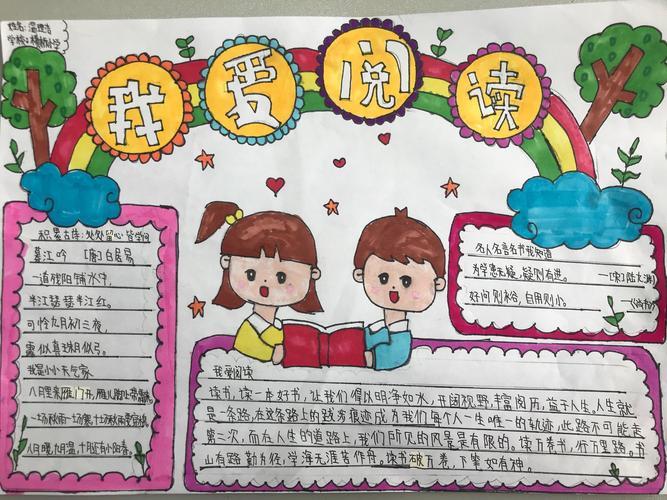 我爱阅读
积累古诗:处处留心皆学问
暮江吟 [唐]白居易
一道残阳铺水中,
半江瑟瑟半江红。
可怜九月初三夜,
露似真珠月似弓。
我是小小天气家
八月里来雁门开,雁儿脚下带霜来。
一场秋雨一场寒,十场秋雨要穿棉
八月暖,九月温,十月还有小阳春。
名人名言名书我知道
为学患无疑,疑则有进。
——[宋]陆九渊
好问则裕,自用则小。
我爱阅读
读书,读一本好书,让我们得以明净如水,开阔视野,丰富阅历,益于人生。人生就
是一条路,在这条路上的跋涉痕迹成为我们每个人一生唯一的轨迹,此路不可能走
第二次,而在人生的道路上,我们所见的风景是有限的。读万卷书,行万里路。书
山有路勤为径,学海无涯苦作舟。读书破万卷,下笔如有神。